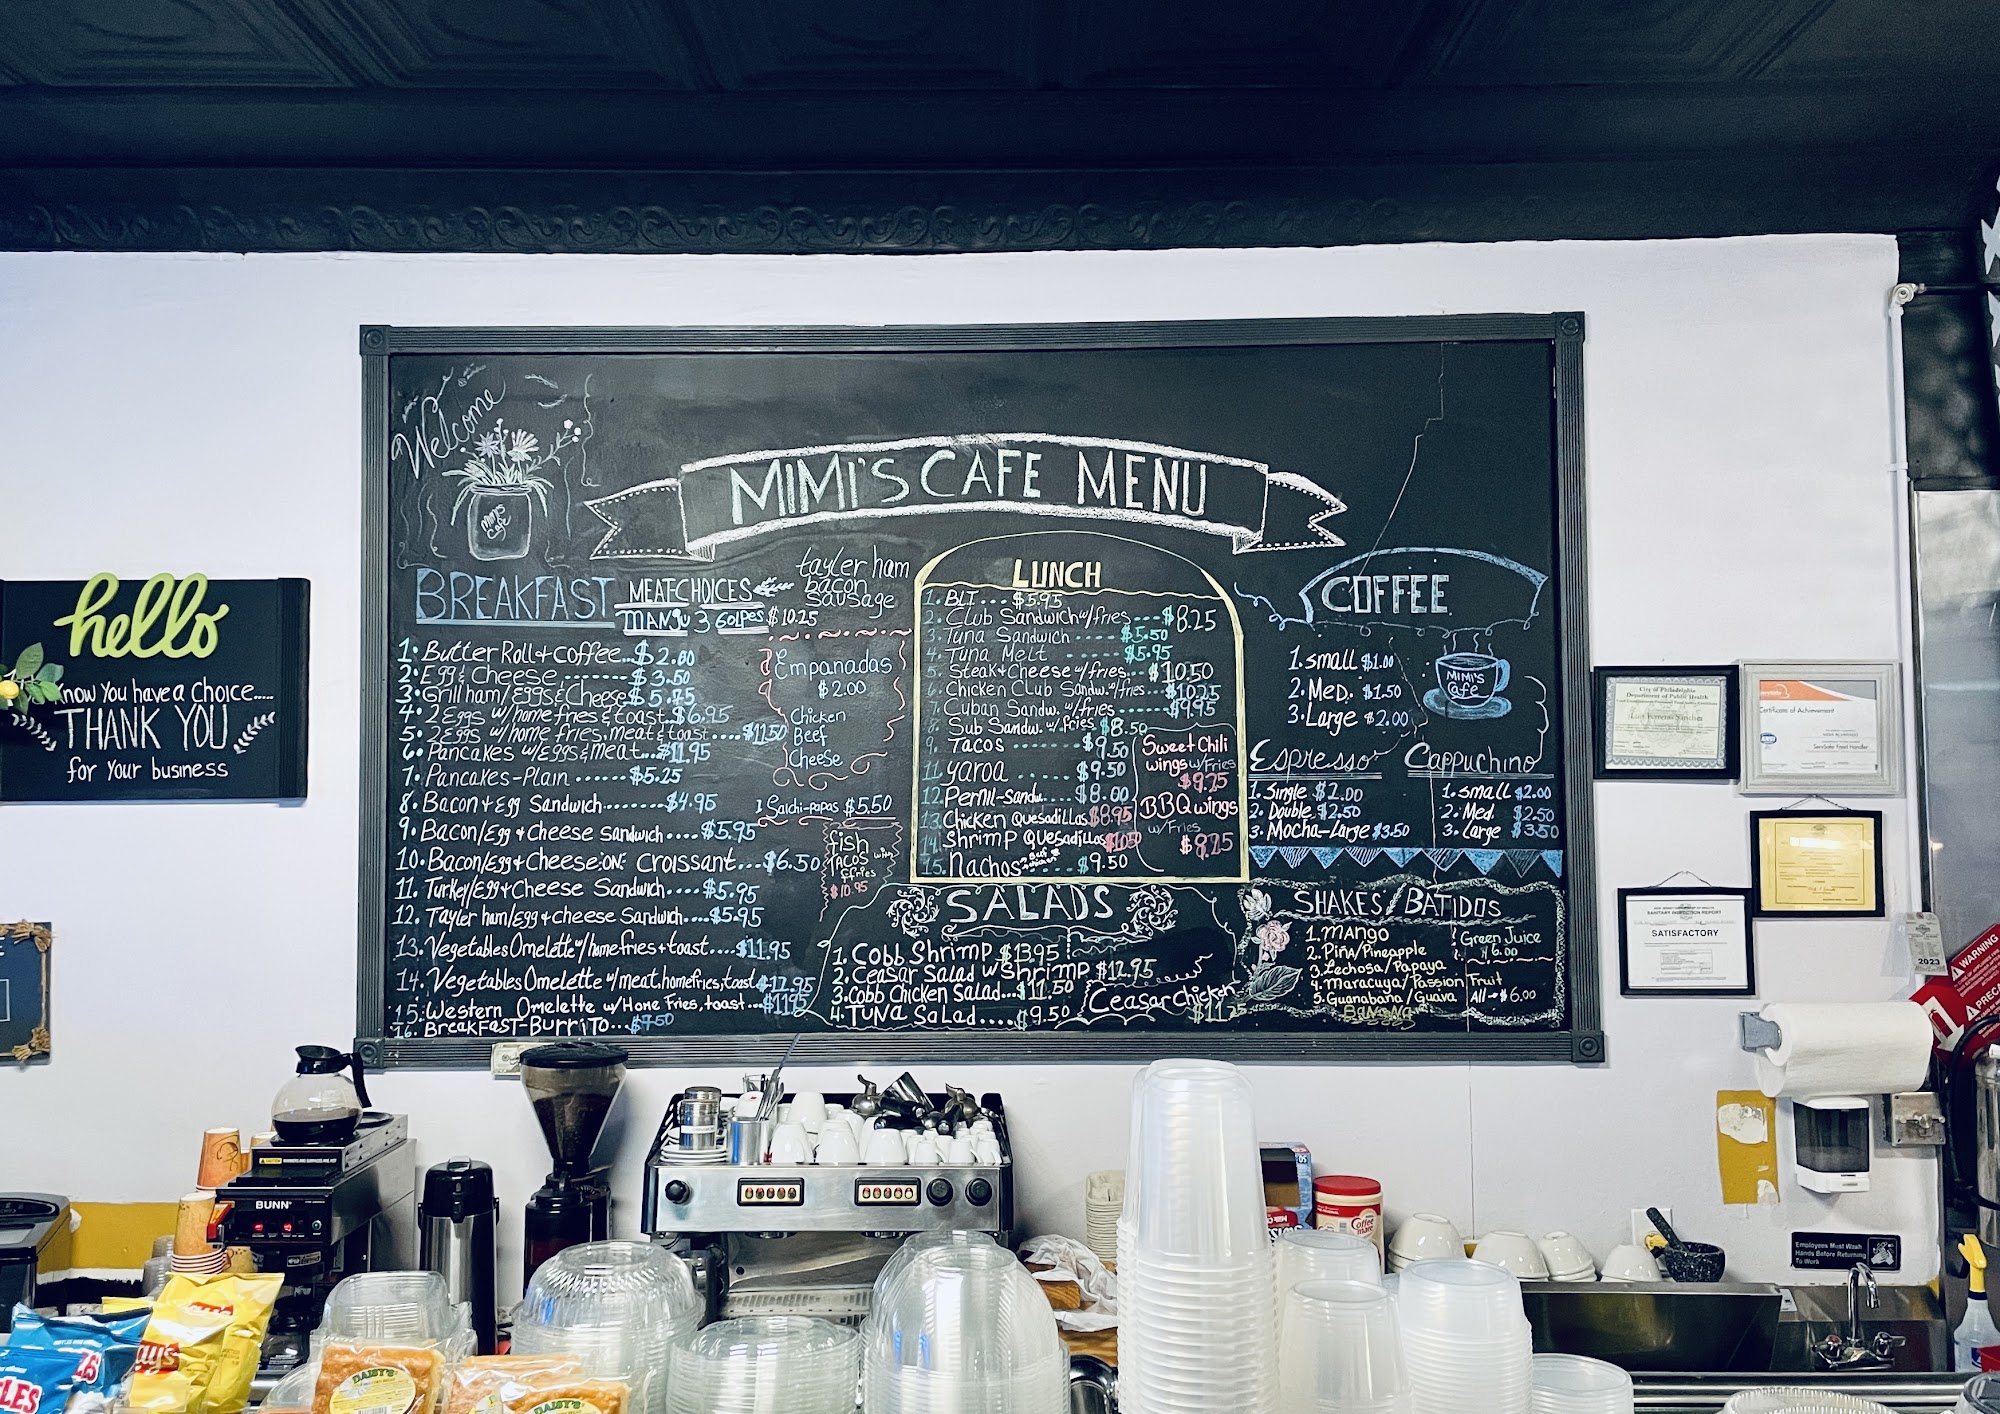 Welcome
MIMI'S
Cafe
MIMI'S CAFE MENU
BREAKFAST
MEAT-CHOICES
tayler ham
bacon
sausage
MANGU 3 GOLPES $10.25
1. Butter Roll + coffee... $2.00
2. Egg & Cheese ........ $3.50
3. Grill ham/eggs & Cheese $5.75
4. 2 Eggs w/home fries & toast.. $6.95
5. 2 Eggs w/home fries, meat & toast.... $11.50
6. Pancakes w/Eggs & meat... $11.95
7. Pancakes-Plain ...... $5.25
8. Bacon + Egg Sandwich........ $4.95
9. Bacon/Egg + Cheese Sandwich .... $5.95
10. Bacon/Egg + Cheese: ON: Croissant... $6.50
11. Turkey/Egg + Cheese Sandwich.... $5.95
12. Tayler ham/Egg + Cheese Sandwich.... $5.95
13. Vegetables Omelette w/homefries + toast.... $11.95
14. Vegetables Omelette w/meat, homefries, toast $12.95
15. Western Omelette w/Home Fries, toast... $11.95
16. BreakFast-Burrito... $7.50
Empanadas
$2.00
Chicken
Beef
Cheese
Salchi-papas $5.50
fish
TACOS with
ffries
$10.95
LUNCH
1. BLT.... $5.95
2. Club Sandwich w/fries .... $8.25
3. Tuna Sandwich ...... $5.50
4. Tuna Melt ...... $5.95
5. Steak + Cheese w/fries... $10.50
6. Chicken Club Sandw. w/fries.... $10.25
7. Cuban Sandw. w/fries .... $9.95
8. Sub Sandw. w/fries $8.50
9. Tacos ........ $9.50
11. Yaroa ...... $9.50
12. Pernil-Sandw..... $8.00
13. Chicken Quesadillas $8.95
14. Shrimp Quesadillas $10.50
15. Nachos Beef chicken $9.50
Sweet Chili
wings w/Fries
$9.25
BBQ wings
w/Fries
$9.25
SALADS
1. Cobb Shrimp $13.95
2. Ceasar Salad w Shrimp $12.95
3. Cobb Chicken Salad... $11.50
4. Tuna Salad.... $9.50
Ceasar Chicken
$11.25
COFFEE
1. Small $1.00
2. Med. $1.50
3. Large $2.00
MIMI'S
Cafe
Espresso
1. Single $2.00
2. Double $2.50
3. Mocha-Large $3.50
Cappuchino
1. small $2.00
2. Med. $2.50
3. Large $3.50
SHAKES/BATIDOS
1. Mango
2. Piña/Pineapple
3. Lechosa/Papaya
4. Maracuya/Passion Fruit
5. Guanabana/Guava
Banana
Green Juice
$6.00
All → $6.00
hello
know You have a Choice.....
THANK YOU
for Your business
City of Philadelphia
Department of Public Health
Certificate of Achievement
ServSafe Food Handler
SANITARY INSPECTION REPORT
SATISFACTORY
2023
WARNING
BUNN
Coffee
mate
Employees Must Wash
Hands Before Returning
To Work
Lay's
DAISY'S
DAISY'S